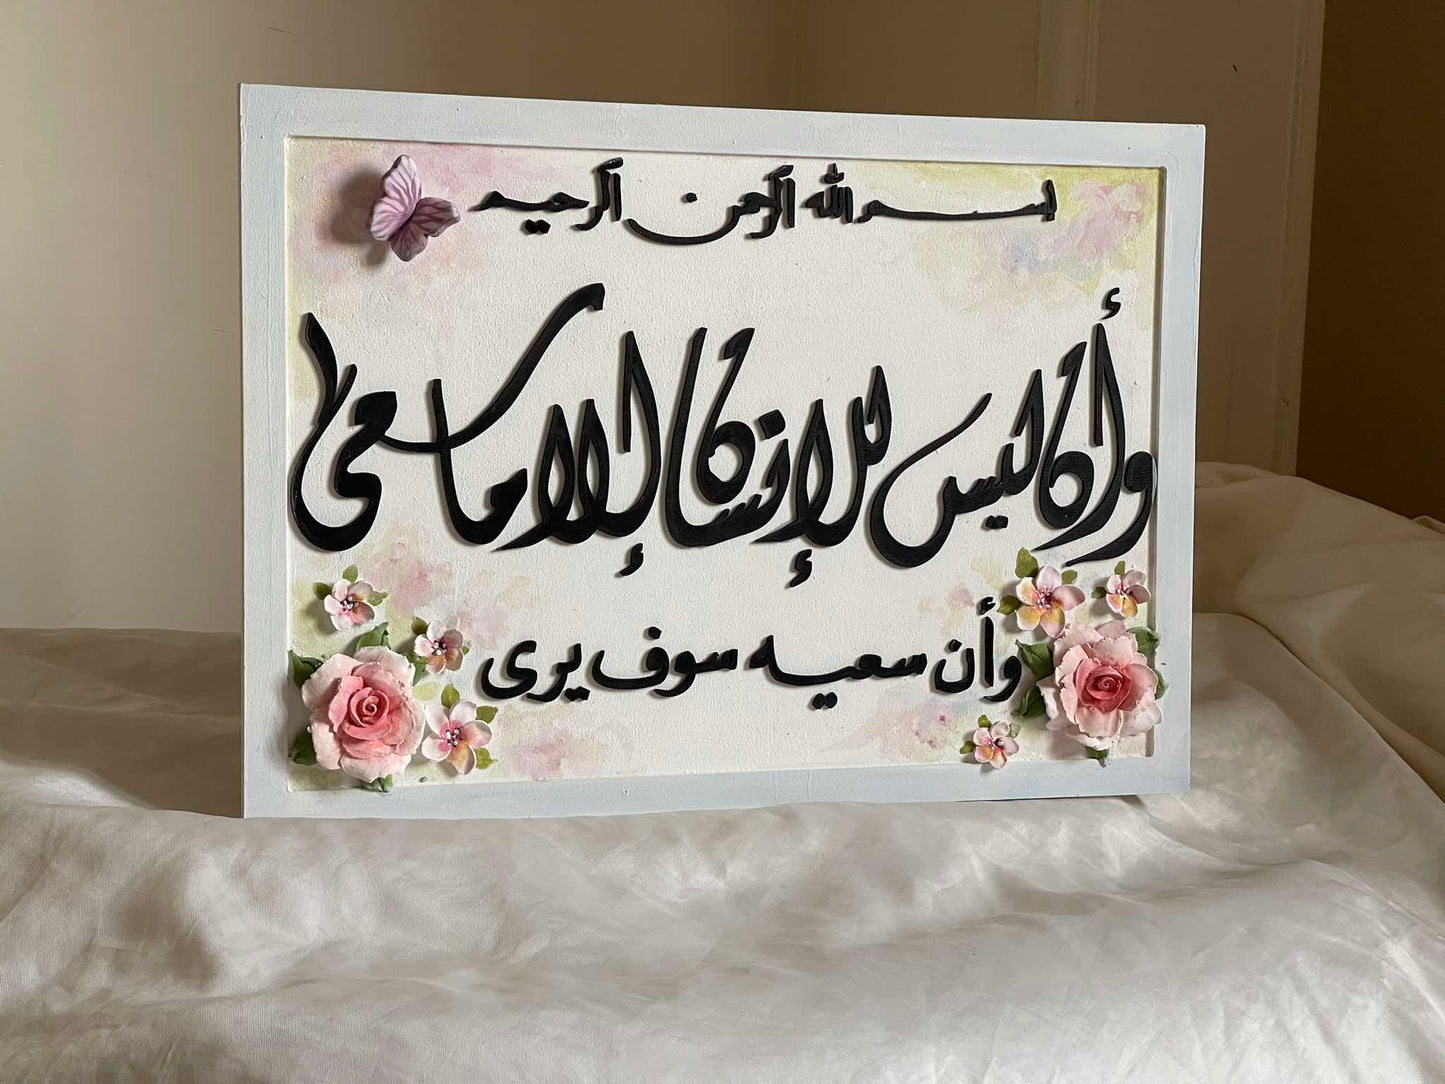 بسم الله الرحمن الرحيم
وأن ليس للإنسان إلا ما سعى
وأن سعيه سوف يرى